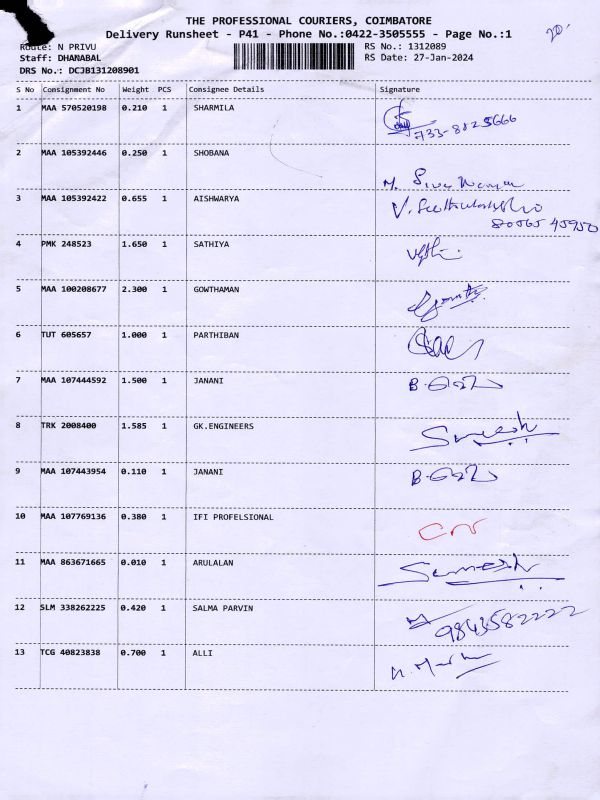 THE PROFESSIONAL COURIERS, COIMBATORE
Delivery Runsheet - P41 - Phone No.:0422-3505555 - Page No.:1
20
Route: N PRIVU
RS No.: 1312089
Staff: DHANABAL
RS Date: 27-Jan-2024
DRS No.: DCJB131208901
S No Consignment No Weight PCS Consignee Details Signature
1 MAA 570520198 0.210 1 SHARMILA
2 MAA 105392446 0.250 1 SHOBANA
3 MAA 105392422 0.655 1 AISHWARYA
80565 45950
4 PMK 248523 1.650 1 SATHIYA
5 MAA 100208677 2.300 1 GOWTHAMAN
6 TUT 605657 1.000 1 PARTHIBAN
7 MAA 107444592 1.500 1 JANANI
8 TRK 2008400 1.585 1 GK.ENGINEERS Suresh
9 MAA 107443954 0.110 1 JANANI
10 MAA 107769136 0.380 1 IFI PROFELSIONAL
11 MAA 863671665 0.010 1 ARULALAN
12 SLM 338262225 0.420 1 SALMA PARVIN 9843582222
13 TCG 40823838 0.700 1 ALLI